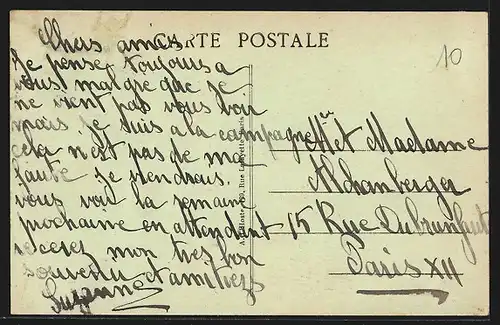 CARTE POSTALE
10
Chers amies
Je pense toujours a
vous malgre que je
ne vient pas vous voir
mais je suis a la campagne
cela n'est pas de ma
faute je viendrais
vous voir la semaine
prochaine en attendant
recevez mon très bon
souvenir et amitiés
Suzanne
Mr et Madame
Alchanberger
15 Rue Dubrunfaut
Paris XII
Rue Lafayette, Paris